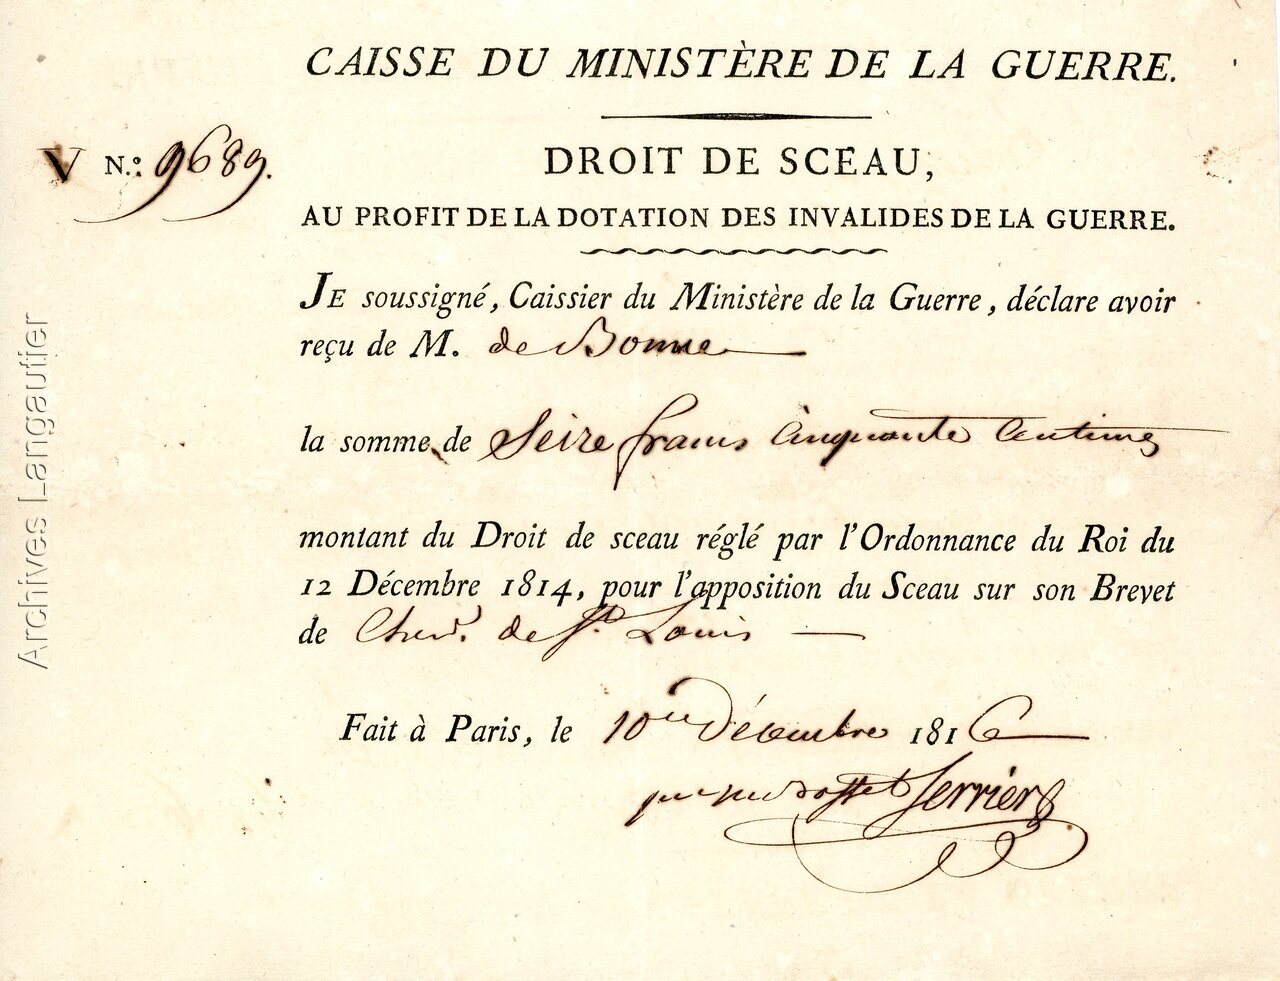 CAISSE DU MINISTÈRE DE LA GUERRE.
V N.º: 9689.
DROIT DE SCEAU,
AU PROFIT DE LA DOTATION DES INVALIDES DE LA GUERRE.
JE soussigné, Caissier du Ministère de la Guerre, déclare avoir
reçu de M. de Bonne
la somme de Seize francs Cinquante Centimes
montant du Droit de sceau réglé par l'Ordonnance du Roi du
12 Décembre 1814, pour l'apposition du Sceau sur son Brevet
de Chev.r de St. Louis
Fait à Paris, le 10 Décembre 1816
Serrier
Archives Langautier